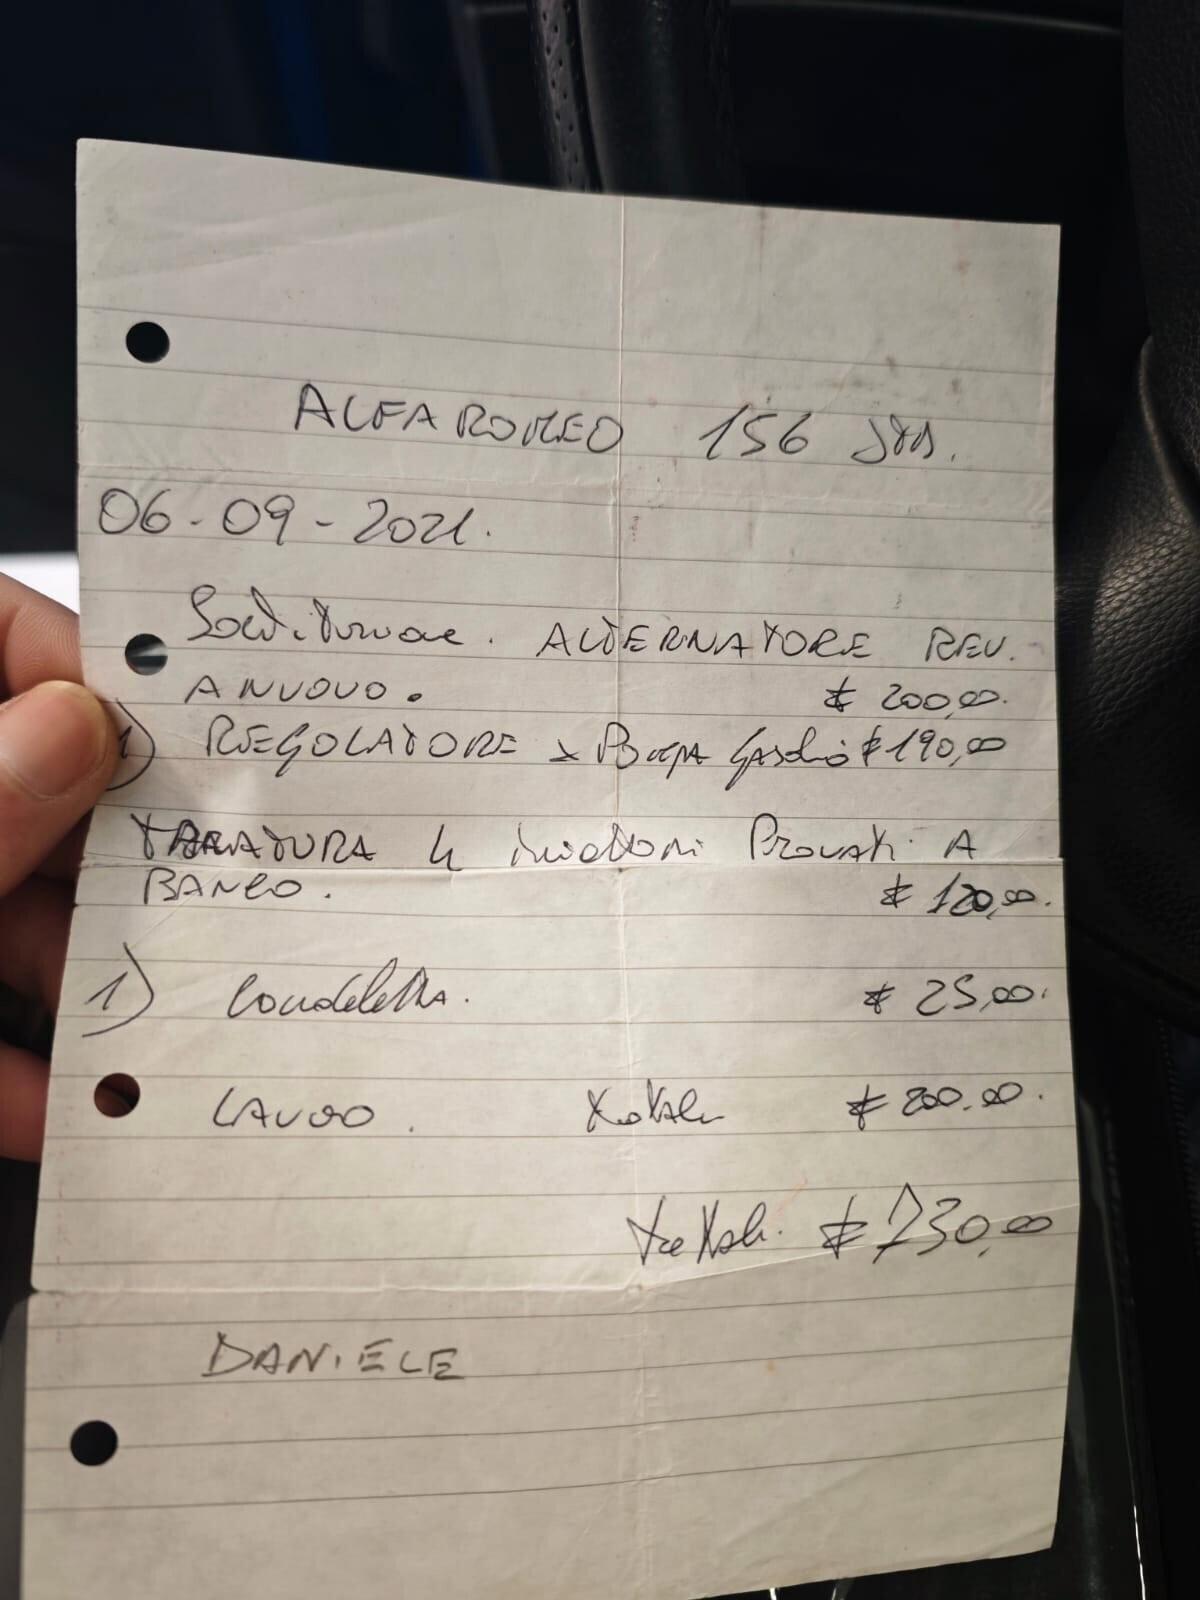 ALFA ROMEO 156 JTD.
06-09-2021.
Sostituzione. ALTERNATORE REV.
A NUOVO. € 200,00.
1) REGOLATORE x POMPA Gasolio € 190,00
TARATURA 4 iniettori Provati A
BANCO. € 120,00.
1) Candeletta. € 25,00.
LAVORO. Totale € 200.00.
Totale. € 730,00
DANIELE